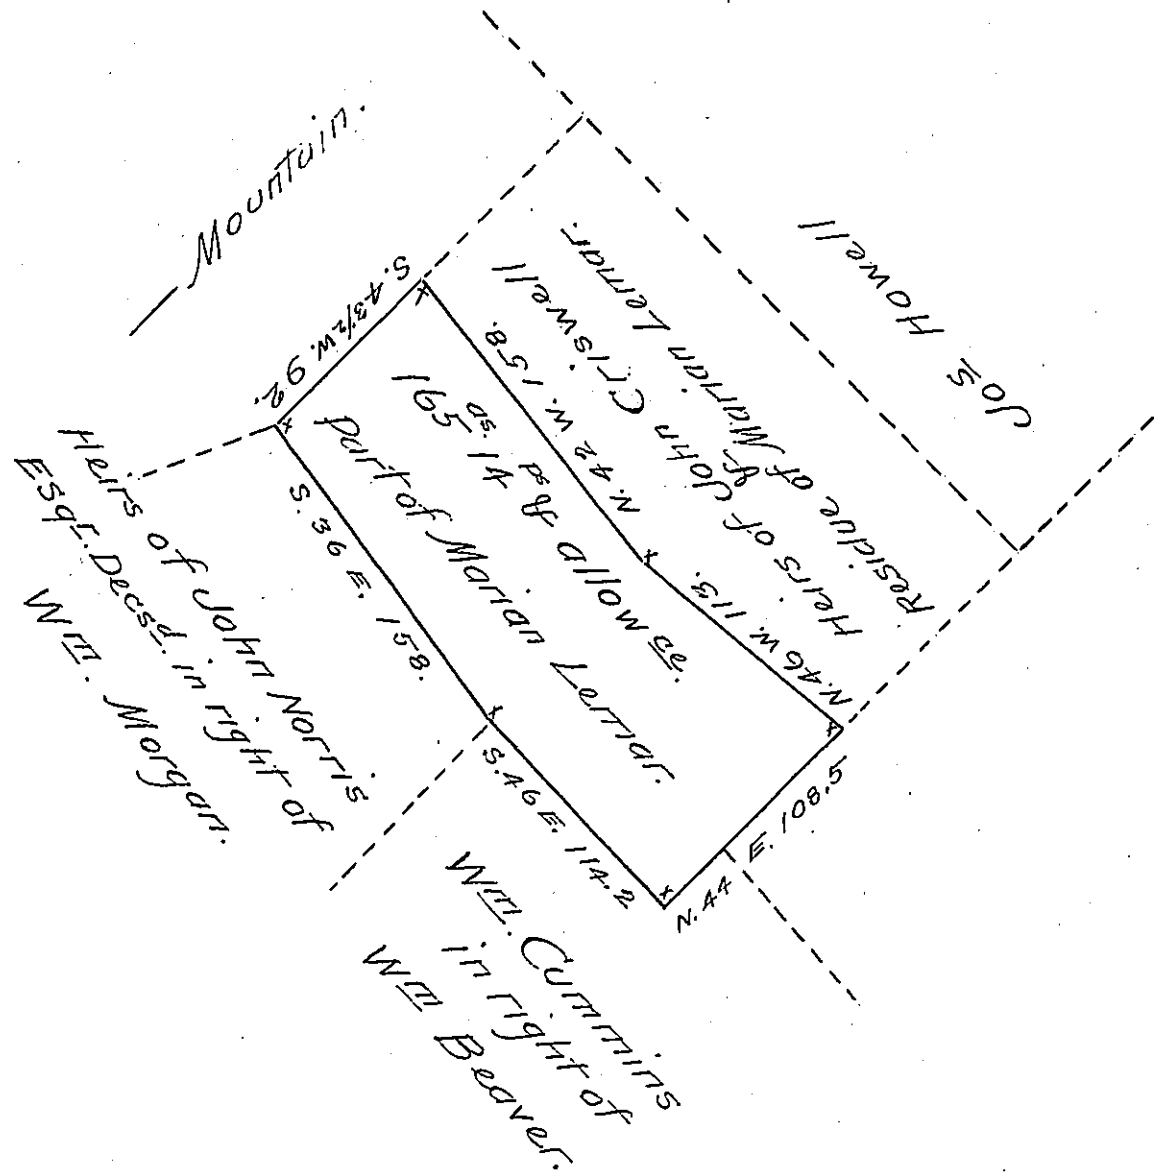 Mountain.
Jos Howell
Residue of Marian Lemar.
Heirs of John Criswell
S. 43 1/2 W. 92.
N. 42 W. 158.
N. 46 W. 113.
165 as. 14 ps & allowce.
part of Marian Lemar.
S. 36 E. 158.
S. 46 E. 114.2
N. 44 E. 108.5
Heirs of John Norris
Esqr. Decsd. in right of
Wm. Morgan.
Wm. Cummins
in right of
Wm Beaver.